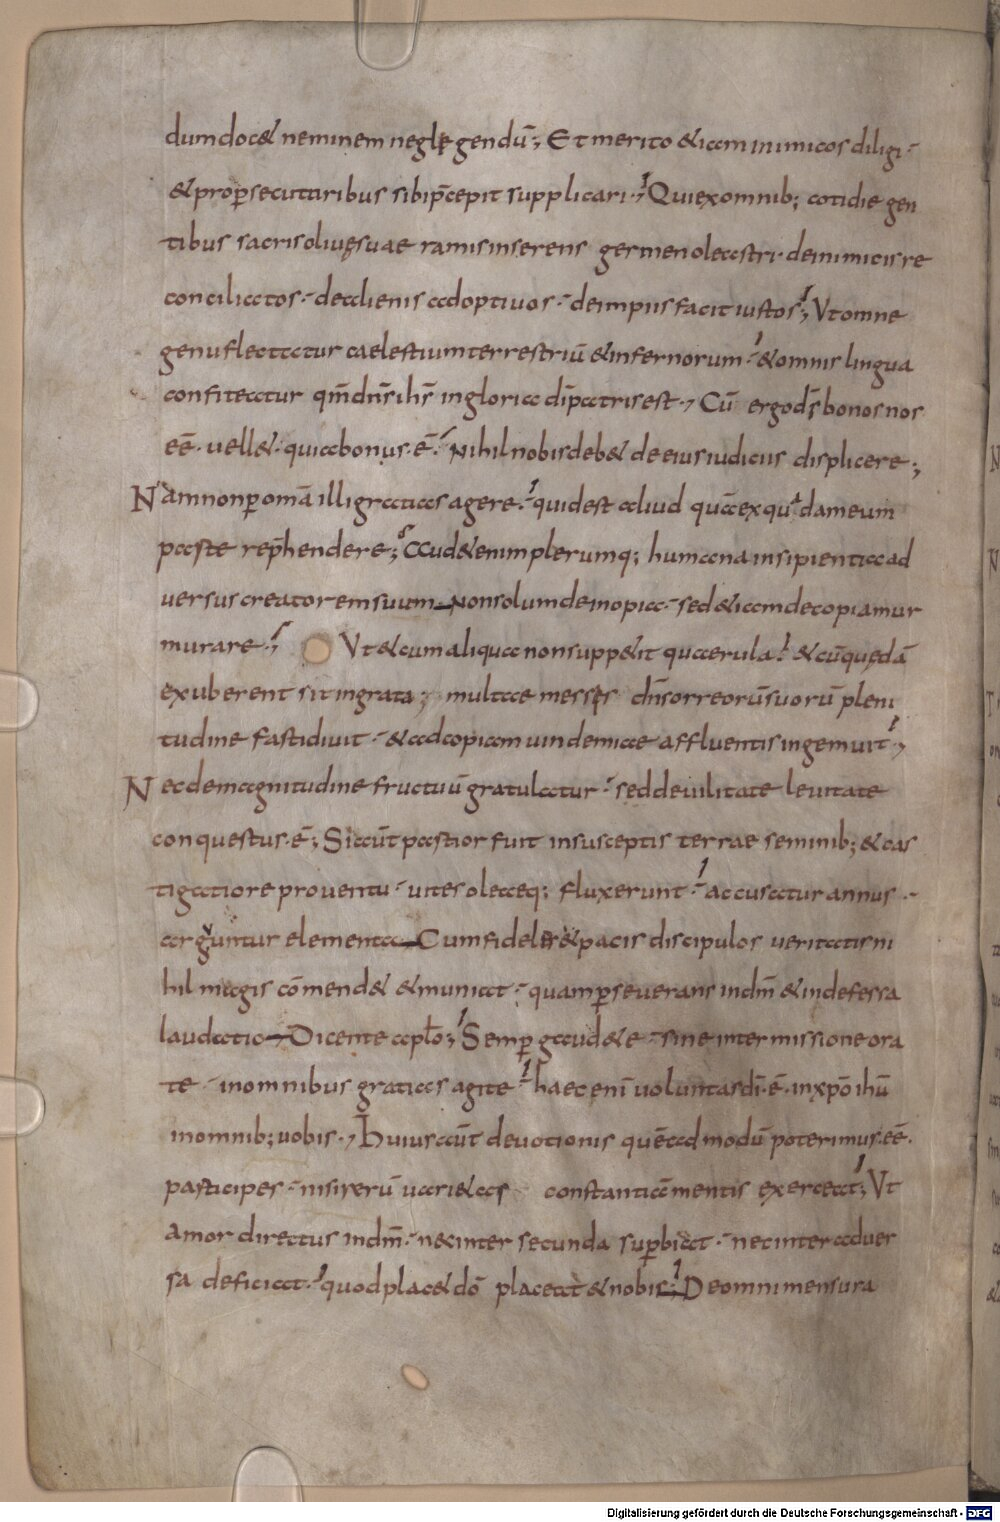 dum doc& neminem neglegendū; Et merito &iam inimicos diligi.
& p̲ro p̲secutoribus sibi p̄cepit supplicari. Qui ex omnib; cotidie gen
tibus sacris olivęsuae ramis inserens germen oleastri. de inimicis re
conciliatos. de alienis adoptivos. de impiis facit iustos; Vt omne
genu flectatur caelestium terrestriū & infernorum. & omnis lingua
confiteatur qm̄ dn̄s ih̄s in gloria dī patris est. Cū ergo dš bonos nos
eē. vell&. quia bonus. ē. Nihil nobis deb& de eius iudiciis displicere;
Nam non p̲ omā illi gratias agere. quid est aliud quā ex quadam eum
parte rep̄hendere; Aud& enim plerumq; humana insipientia ad
versus creatorem suum non solum de inopia. sed &iam de copia mur
murare. Vt & cum aliqua non supp&it querula. & cū quędā
exuberent sit ingrata; multae messes dn̄s orreorū suorū pleni
tudine fastidivit. & ad copiam vindemiae affluentis ingemuit.
Nec de magnitudine fructuū gratulatur. sed de vilitate levitate
conquestus. ē; Si aūt pastior fuit in susceptis terrae seminib; & cas
tigatiore proventu. vites oleaeq; fluxerunt. accusatur annus.
arguntur elementa Cum fideles & pacis discipulos veritatis ni
hil magis cōmend& & muniat. quam p̲severans in dm̄ & indefessa
laudatio Dicente aplo; Semp̲ gaud&e. sine intermissione ora
te. in omnibus gratias agite. haec enī voluntas dī. ē. in xp̄o ihū
in omnib; vobis. Huius aūt devotionis quēadmodū poterimus. eē.
participes. nisi rerū vari&as constantiā mentis exerceat; Vt
amor directus in dm̄. nec inter secunda sup̲biat. nec inter adver
sa deficiat. quod plac& dō placeat & nobis; De omni mensura
Digitalisierung gefördert durch die Deutsche Forschungsgemeinschaft - DFG